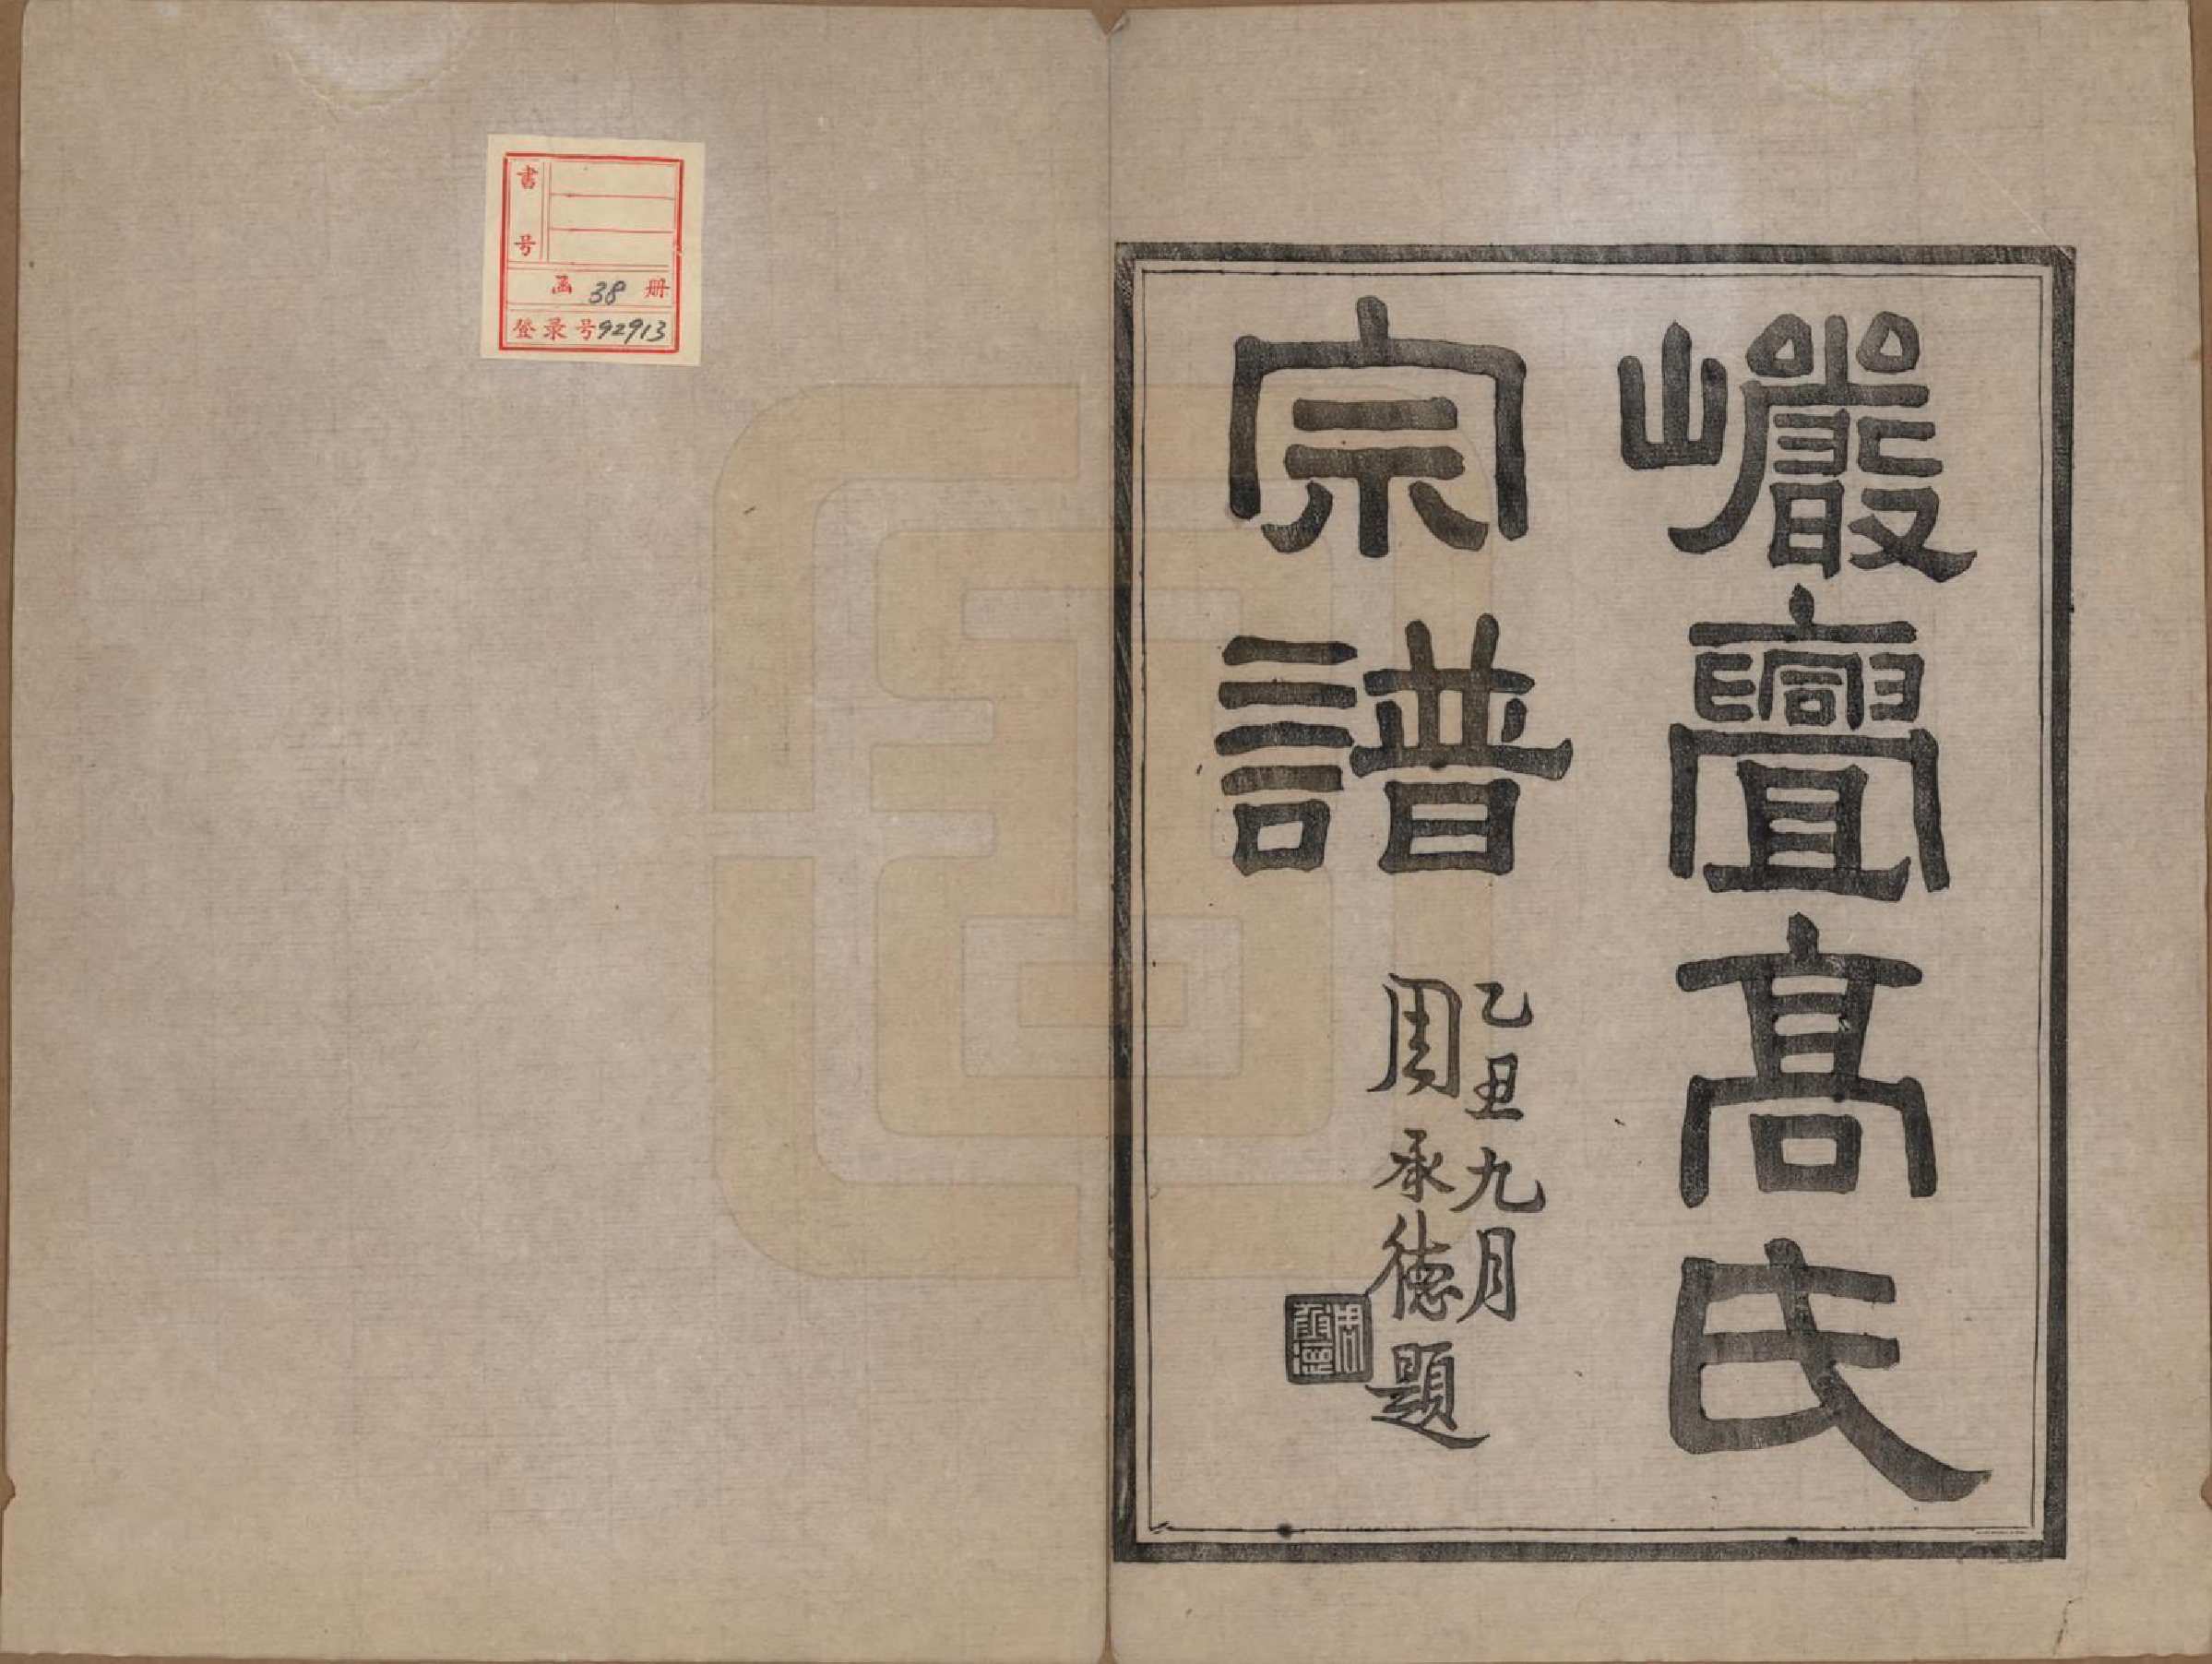 巗亹髙氏
宗譜
乙丑九月
周承德題
周承德
書号
函 38 册
登录号92913